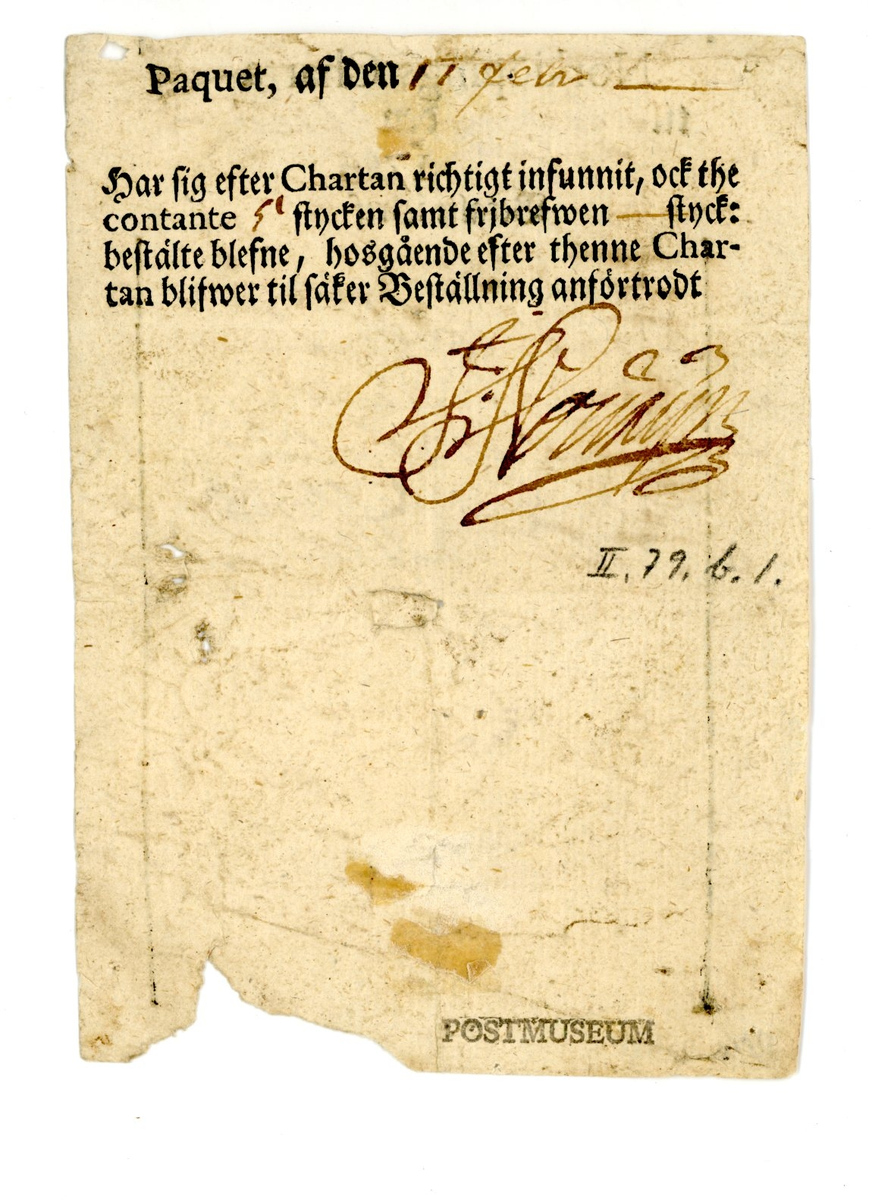 Paquet, af den 17 febr
Har sig efter Chartan richtigt infunnit, ock the
contante 5 stycken samt frjbrefwen — styck:
bestälte blefne, hosgående efter thenne Char-
tan blifwer til säker Beställning anförtrodt
II. 79. b. 1.
POSTMUSEUM